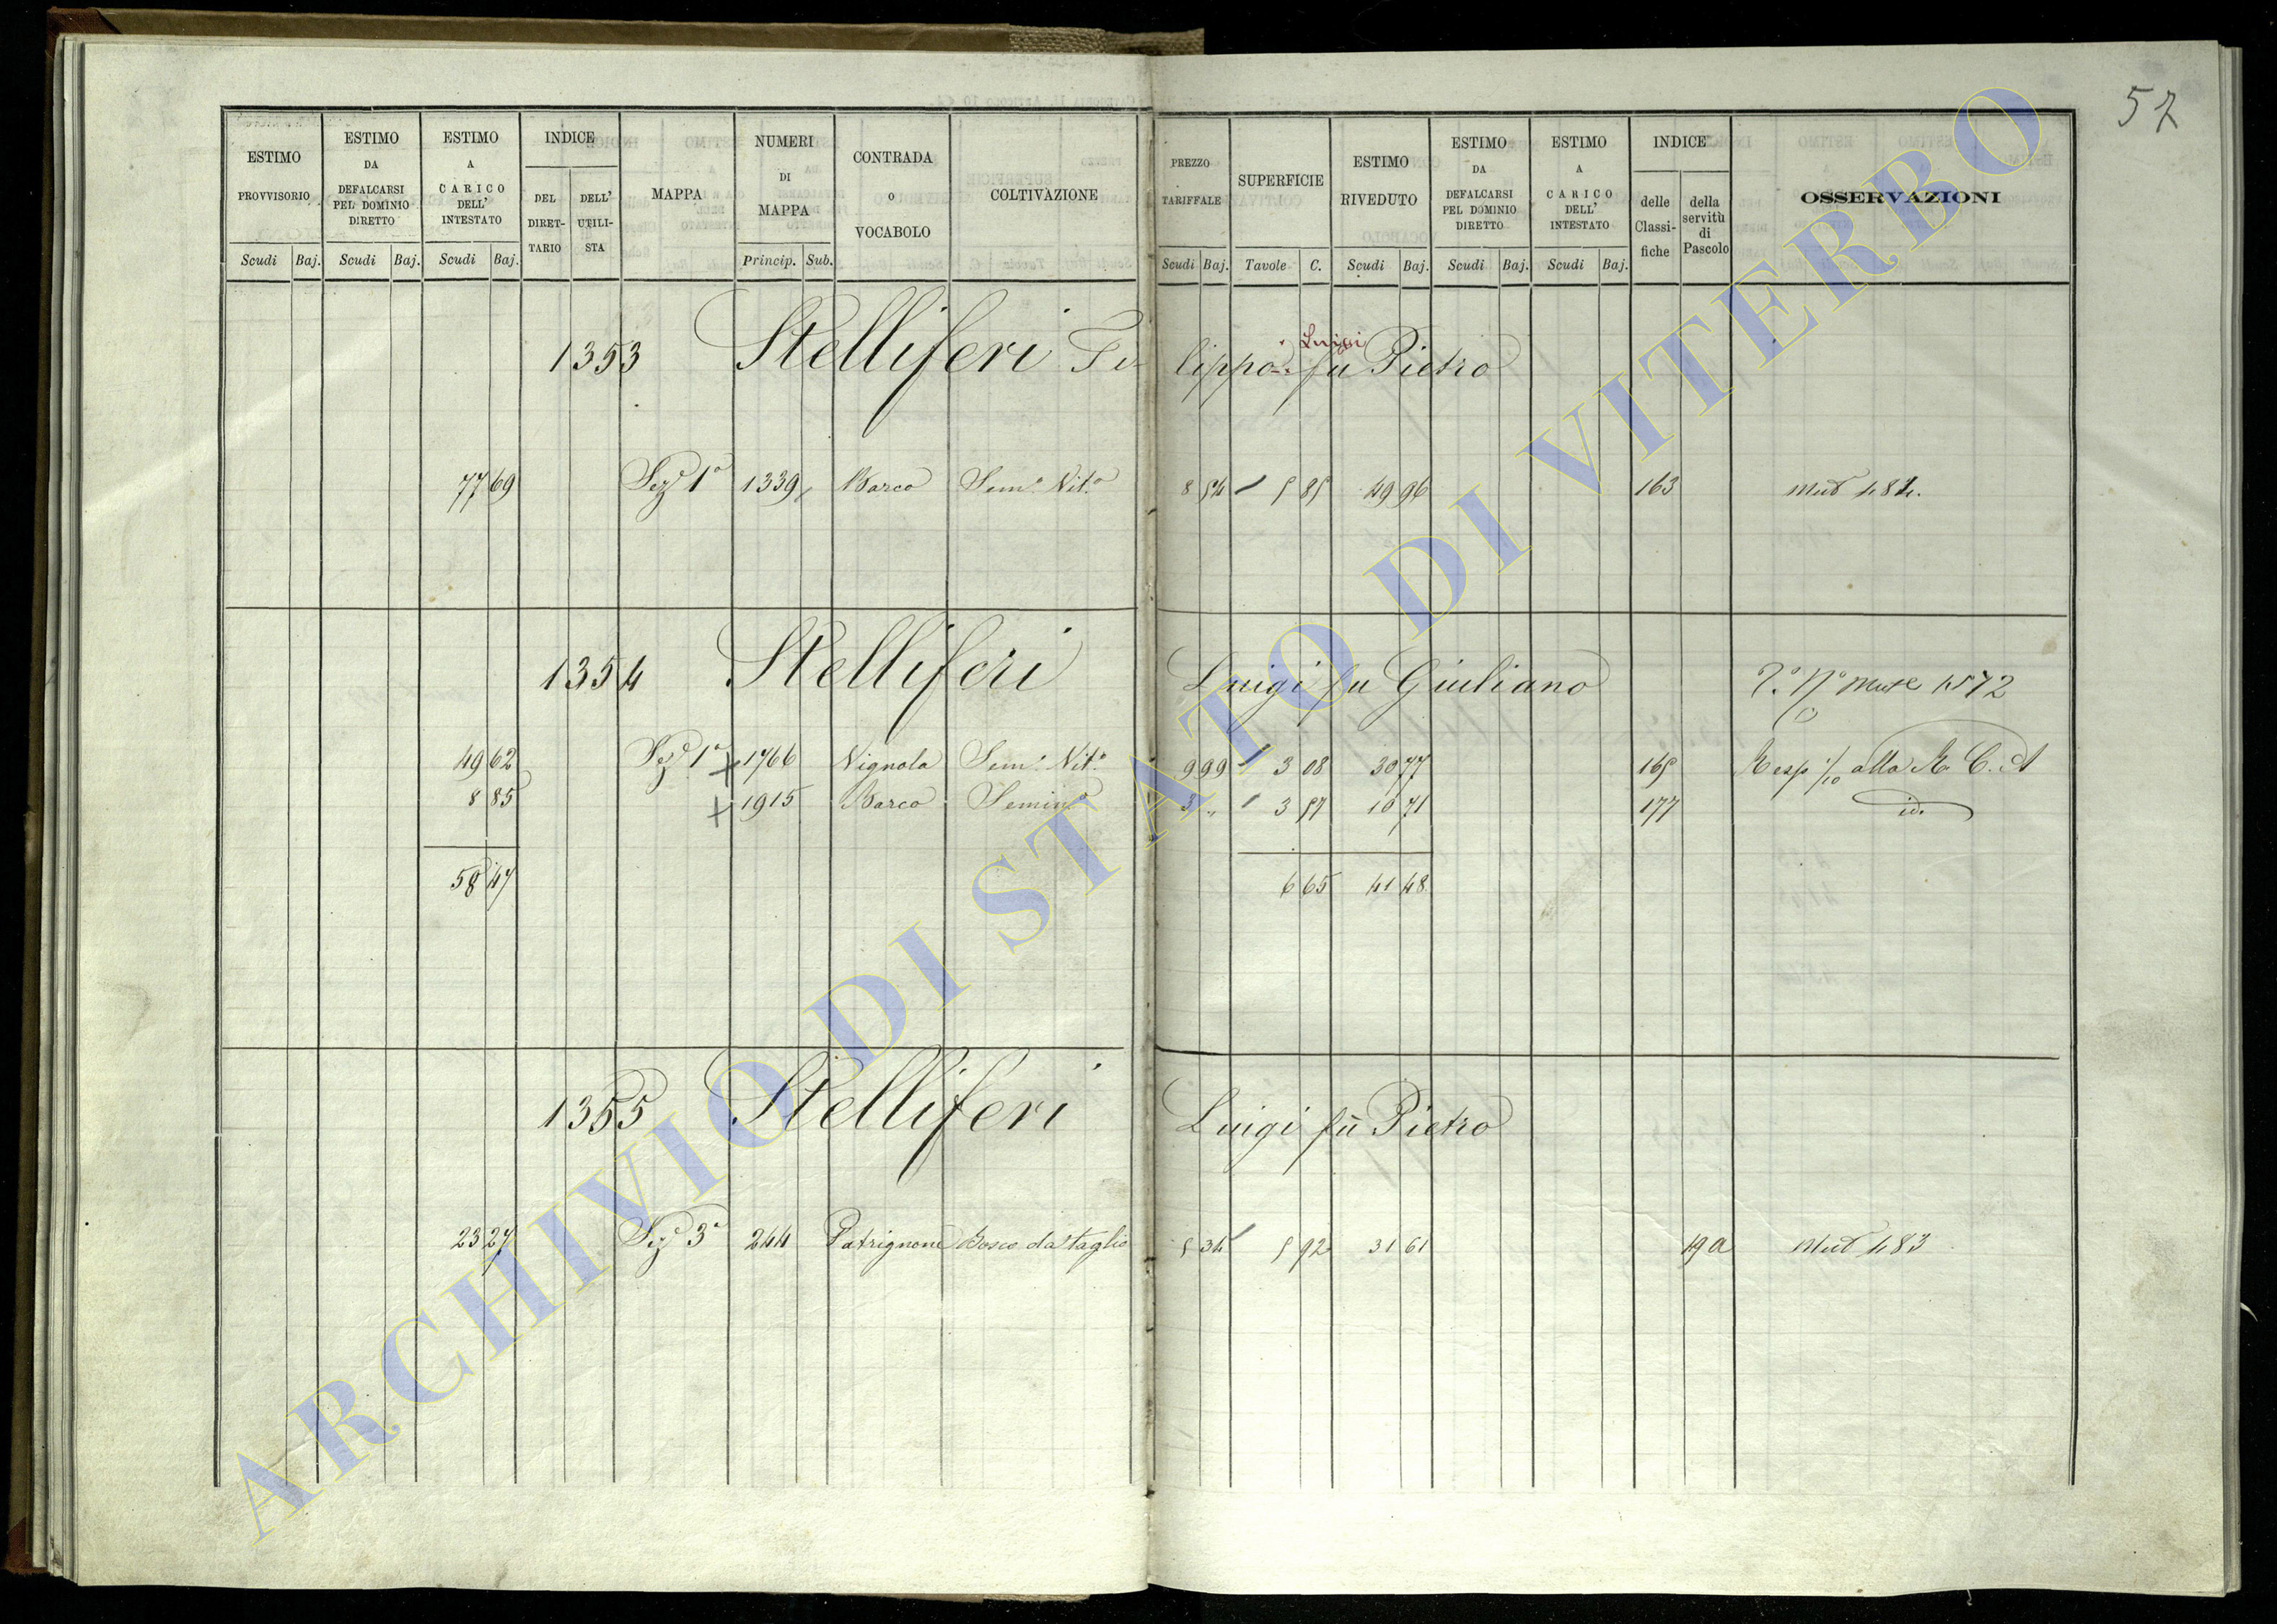 52
ESTIMO PROVVISORIO Scudi Baj.
ESTIMO DA DEFALCARSI PEL DOMINIO DIRETTO Scudi Baj.
ESTIMO A CARICO DELL' INTESTATO Scudi Baj.
INDICE DEL DIRETTARIO DELL' UTILISTA
MAPPA
NUMERI DI MAPPA Princip. Sub.
CONTRADA o VOCABOLO
COLTIVAZIONE
PREZZO TARIFFALE Scudi Baj.
SUPERFICIE Tavole C.
ESTIMO RIVEDUTO Scudi Baj.
ESTIMO DA DEFALCARSI PEL DOMINIO DIRETTO Scudi Baj.
ESTIMO A CARICO DELL' INTESTATO Scudi Baj.
INDICE delle Classifiche della servitù di Pascolo
OSSERVAZIONI
Luigi
1353 Stelliferi Filippo fu Pietro
77 69 Sez.e 1a 1339 Barco Sem.o Vit.o 8 54 5 85 49 96 163 482.
1354 Stelliferi Luigi fu Giuliano 1572
49 62 Sez.e 1a 1766 Vignola Sem.o Vit.o 9 99 3 08 30 77 165 alla
8 85 1915 Barco Semin.o 3 " 3 57 10 71 177 id.
58 47 6 65 41 48
1355 Stelliferi Luigi fù Pietro
23 27 Sez.e 3a 244 Patrignone Bosco da taglio 5 34 5 92 31 61 19a 483
ARCHIVIO DI STATO DI VITERBO